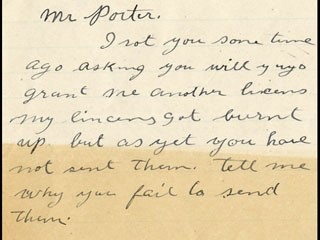 Mr Porter.
I rot you some time
ago asking you will y
grant me another licens
my lincens got burnt
up. but as yet you have
not sent them. tell me
why you fail to send
them.